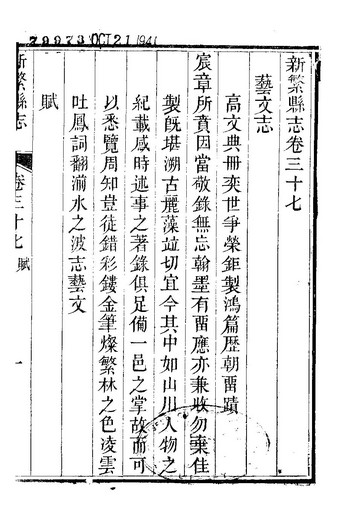 79973 OCT 21 1941
新繁縣志卷三十七
藝文志
高文典冊奕世爭榮鉅製鴻篇歷朝畱蹟
宸章所賁因當敬錄無忘翰墨有畱應亦兼收勿棄佳
製旣堪溯古麗藻竝切宜今其中如山川人物之
紀載感時述事之著錄俱足備一邑之掌故而可
以悉覽周知豈徒錯彩鏤金筆燦繁林之色凌雲
吐鳳詞翻湔水之波志藝文
賦
新繁縣志
卷三十七 賦
一